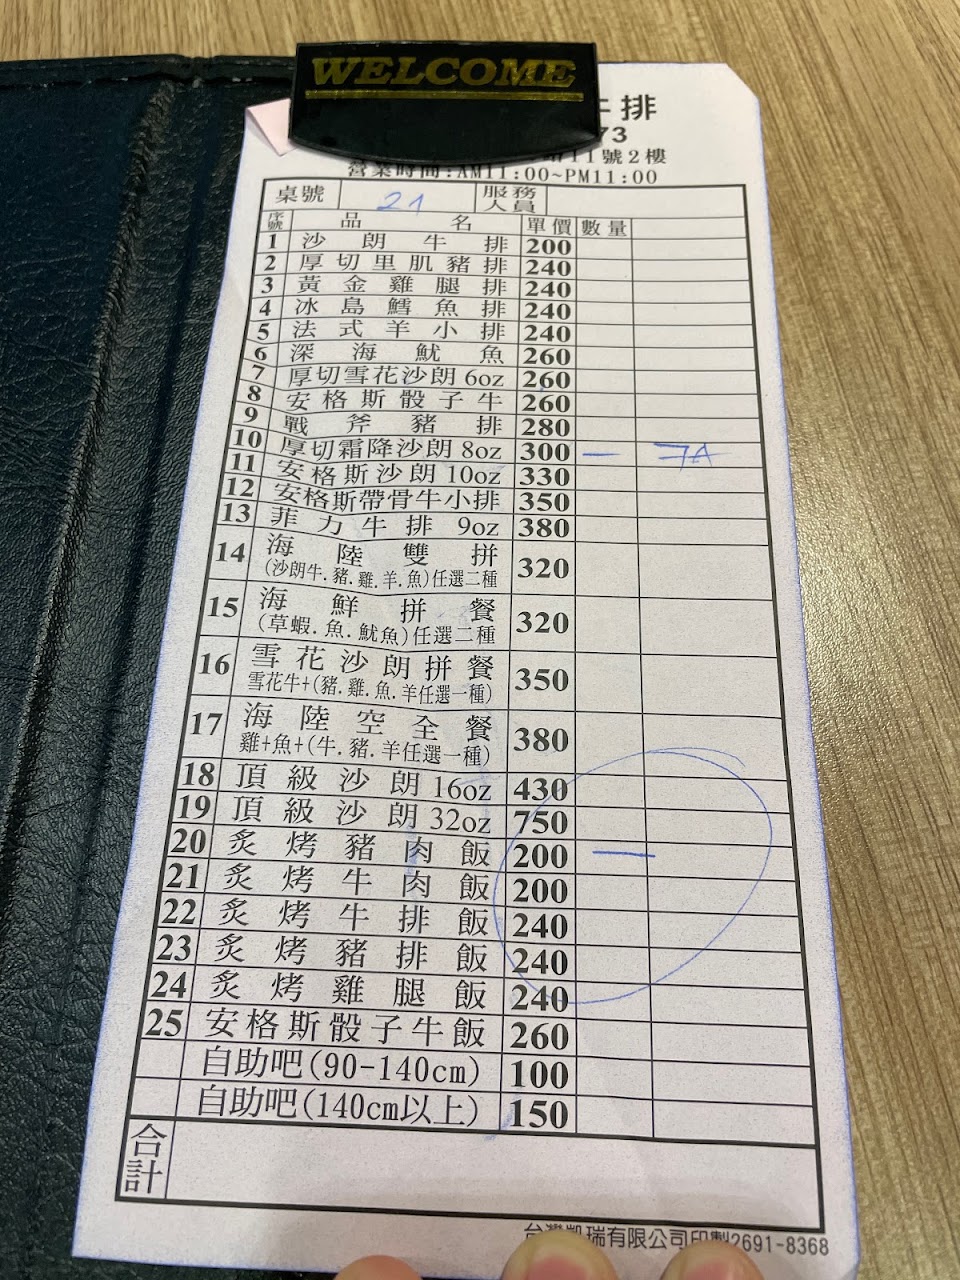 WELCOME
排
73
11號2樓
營業時間:AM11:00~PM11:00
桌號 21 服務人員
序號 品名 單價 數量
1 沙朗牛排 200
2 厚切里肌豬排 240
3 黃金雞腿排 240
4 冰島鱈魚排 240
5 法式羊小排 240
6 深海魷魚 260
7 厚切雪花沙朗6oz 260
8 安格斯骰子牛 260
9 戰斧豬排 280
10 厚切霜降沙朗8oz 300 一 7A
11 安格斯沙朗10oz 330
12 安格斯帶骨牛小排 350
13 菲力牛排 9oz 380
14 海陸雙拼 320
(沙朗牛.豬.雞.羊.魚)任選二種
15 海鮮拼餐 320
(草蝦.魚.魷魚)任選二種
16 雪花沙朗拼餐 350
雪花牛+(豬.雞.魚.羊任選一種)
17 海陸空全餐 380
雞+魚+(牛.豬.羊任選一種)
18 頂級沙朗16oz 430
19 頂級沙朗32oz 750
20 炙烤豬肉飯 200 一
21 炙烤牛肉飯 200
22 炙烤牛排飯 240
23 炙烤豬排飯 240
24 炙烤雞腿飯 240
25 安格斯骰子牛飯 260
自助吧(90-140cm) 100
自助吧(140cm以上) 150
合計
台灣凱瑞有限公司印製2691-8368